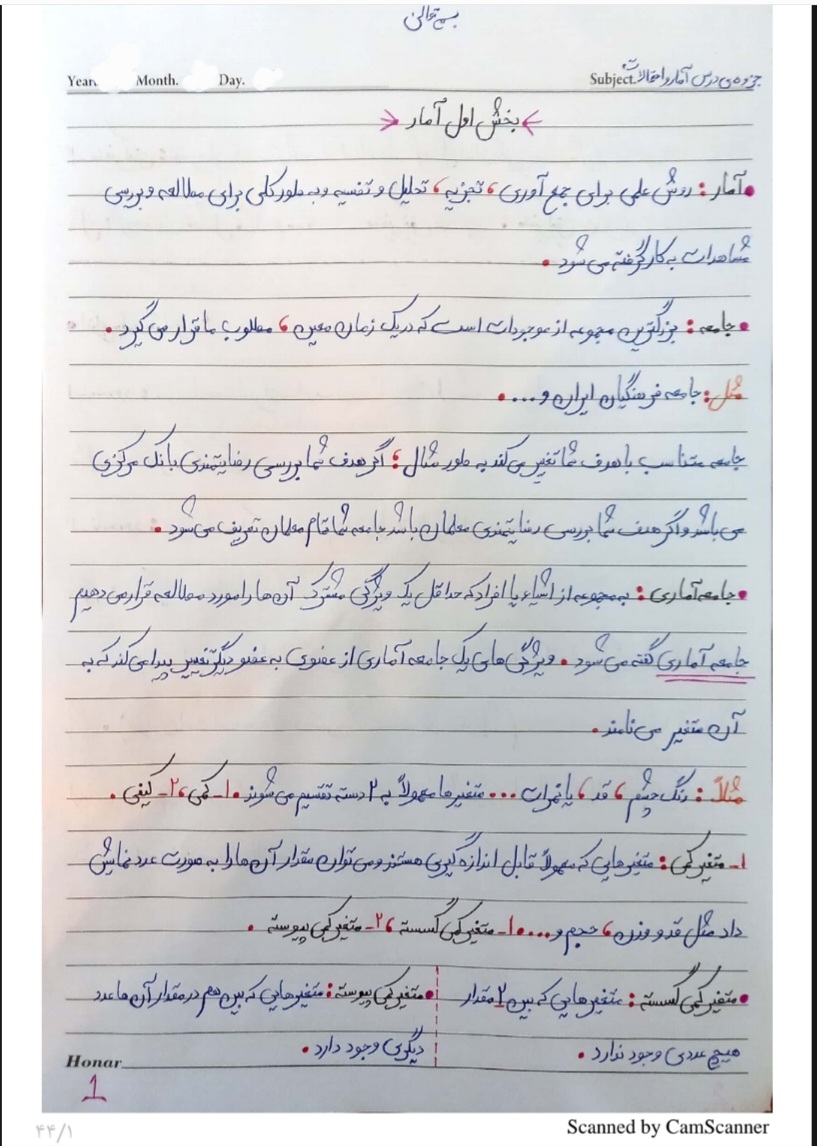 بسمه تعالی
جزوه ی درس آمار و احتمالات
Subject.
Year.
Month.
Day.
بخش اول آمار
آمار: روش علمی برای جمع آوری، تجزیه، تحلیل و تفسیر و به طور کلی برای مطالعه و بررسی
مشاهدات به کار گرفته می شود.
جامعه: بزرگترین مجموعه از موجودات است که در یک زمان معین، مطلوب ما قرار می گیرد.
مثل: جامعه فرهنگیان ایران و ....
جامعه متناسب با هدف شما تغیر می کند به طور مثال؛ اگر هدف شما بررسی رضایتمندی بانک مرکزی
می باشد و اگر هدف شما بررسی رضایتمندی معلمان باشد جامعه شما تمام معلمان تعریف می شود.
جامعه آماری: به مجموعه از اشیاء یا افراد که حداقل یک ویژگی مشترک آن ها را مورد مطالعه قرار می دهیم
جامعه آماری گفته می شود. ویژگی های یک جامعه آماری از عضوی به عضو دیگر تغییر پیدا می کند که به
آن متغیر می نامند.
مثلاً: رنگ چشم، قد، یا نمرات ... متغیرها معمولاً به ۲ دسته تقسیم می شوند ۱- کمی، ۲- کیفی.
۱- متغیر کمی: متغیرهایی که معمولاً قابل اندازه گیری هستند و می توان مقدار آن ها را به صورت عدد نمایش
داد مثل قد و وزن، حجم و ... ۱- متغیر کمی گسسته، ۲- متغیر کمی پیوسته.
متغیر کمی گسسته: متغیرهایی که بین ۲ مقدار
هیچ عددی وجود ندارد.
متغیر کمی پیوسته: متغیرهایی که بین هم در مقدار آن ها عدد
دیگری وجود دارد.
Honar
1
۴۴/۱
Scanned by CamScanner